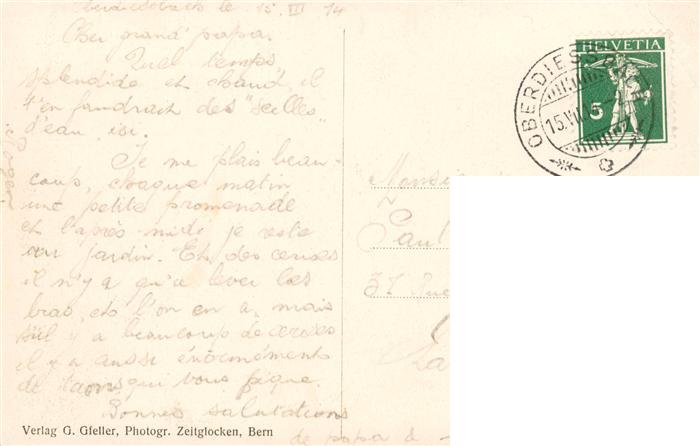 le 15. VII 14
Cher grand' papa.
Quel temps
splendide et chaud, il
t'en faudrait des "seilles"
d'eau ici.
Je me plais beau-
coup, chaque matin
une petite promenade
et l'après-midi je reste
au jardin. Et des cerises
il n'y a qu'à lever les
bras, et l'on en a, mais
s'il y a beaucoup de cerises
il y a aussi énormément
de taons qui vous pique.
Bonnes salutations
de papa &
Verlag G. Gfeller, Photogr. Zeitglocken, Bern
HELVETIA
5
OBERDIESSBACH
15.VII.14
Paul
37 Rue
La